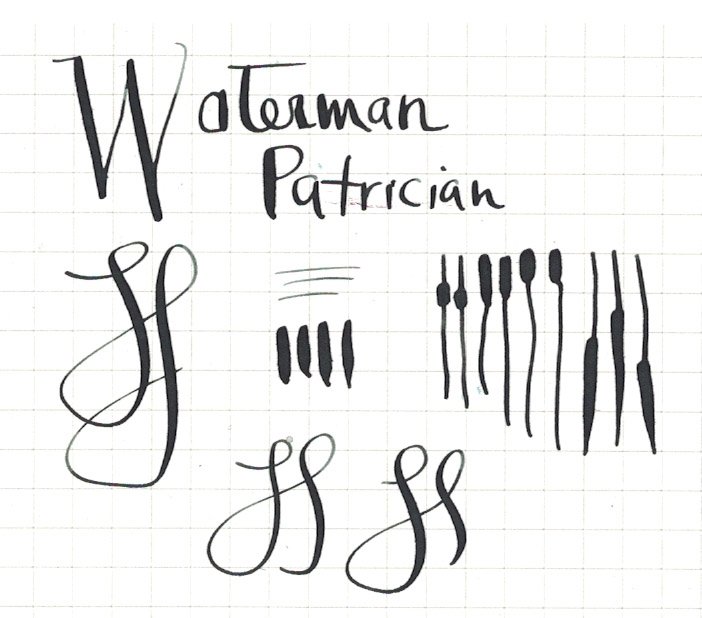 Waterman
Patrician